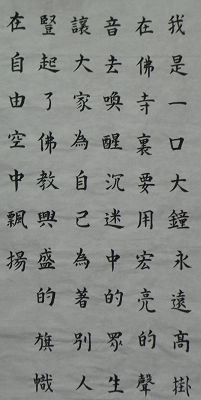 我是一口大鐘永遠高掛
在佛寺裏要用宏亮的聲
音去喚醒沉迷中的眾生
讓大家為自己為著別人
豎起了佛教興盛的旗幟
在自由空中飄揚